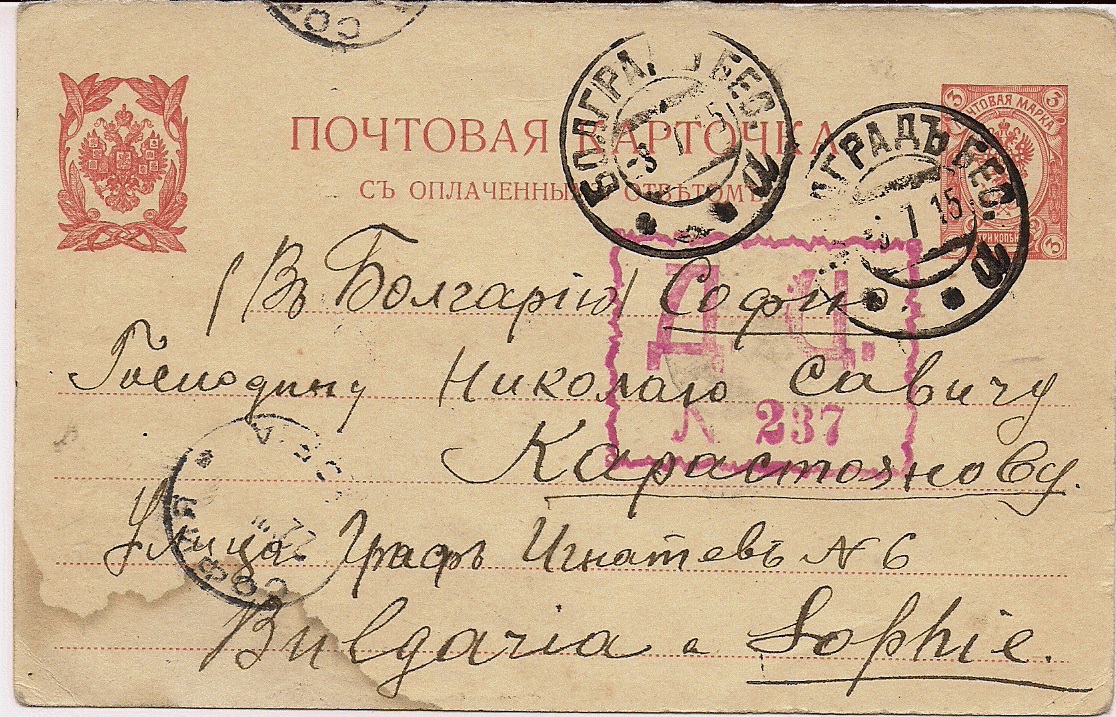 ПОЧТОВАЯ КАРТОЧКА
СЪ ОПЛАЧЕННЫМЪ ОТВѢТОМЪ
3 ПОЧТОВАЯ МАРКА 3
3 ТРИ КОП. 3
БОЛГРАДЪ БЕС.
3 1 15
ГРАДЪ БЕС.
1 15
Д. Ц.
N 237
(Въ Болгарію) Софія
Господину Николаю Савичу
Карастоянову.
Улица Графъ Игнатевъ N 6
Bulgaria a Sophie.
СОФИЯ